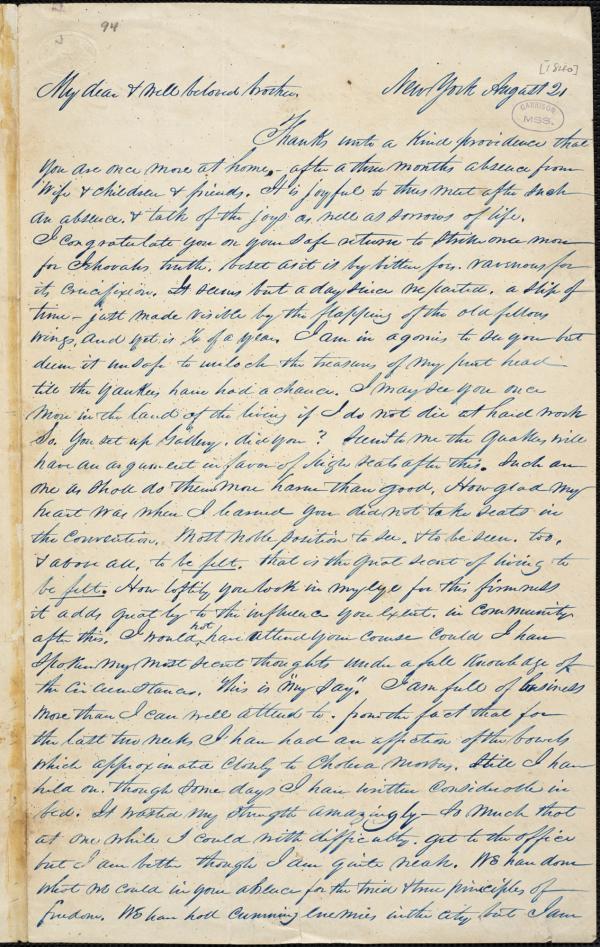 94
[1840]
My dear & well beloved brother, New York August 21
GARRISON
MSS.
Thanks unto a kind providence that
you are once more at home, - after a three months absence from
wife & children & friends. It is joyful to thus meet after such
an absence. & talk of the joys as well as sorrows of life.
I congratulate you on your safe return to strike once more
for Jehovahs truth, beset as it is by bitter foes. ravenous for
its crucifixion. It seems but a day since we parted, a slip of
time - just made visible by the flapping of the old fellows
wings, and yet is ¼ of a year. I am in agonies to see you but
deem it unsafe to unlock the treasures of my head
till the Yankees have had a chance. I may see you once
more in the land of the living if I do not die at hard work
So. You set up Gallery, did you? Seems to me the Quakers will
have an argument in favor of high seats after this. Such an
one as shall do them more harm than good. How glad my
heart was when I learned you did not take seats in
the convention. Most noble position to see. & to be seen. too.
& above all, to be felt. that is the great secret of living to
be felt. How loftily you look in my eye for this firmness
it adds greatly to the influence you exert. in community
after this. I would not have altered your course could I have
spoken my most secret thoughts under a full knowledge of
the circumstances. This is "my say". I am full of business
more than I can well attend to. from the fact that for
the last two weeks I have had an affection of the bowels
which approximated closely to Cholera morbus. Still I have
held on. though some days I have written considerable in
bed. It wasted my strength amazingly - so much that
at one while I could with difficulty. get to the office
but I am better though I am quite weak. We have done
what we could in your absence for the tried & true principles of
freedom. We have had cunning enemies in the city, but I am